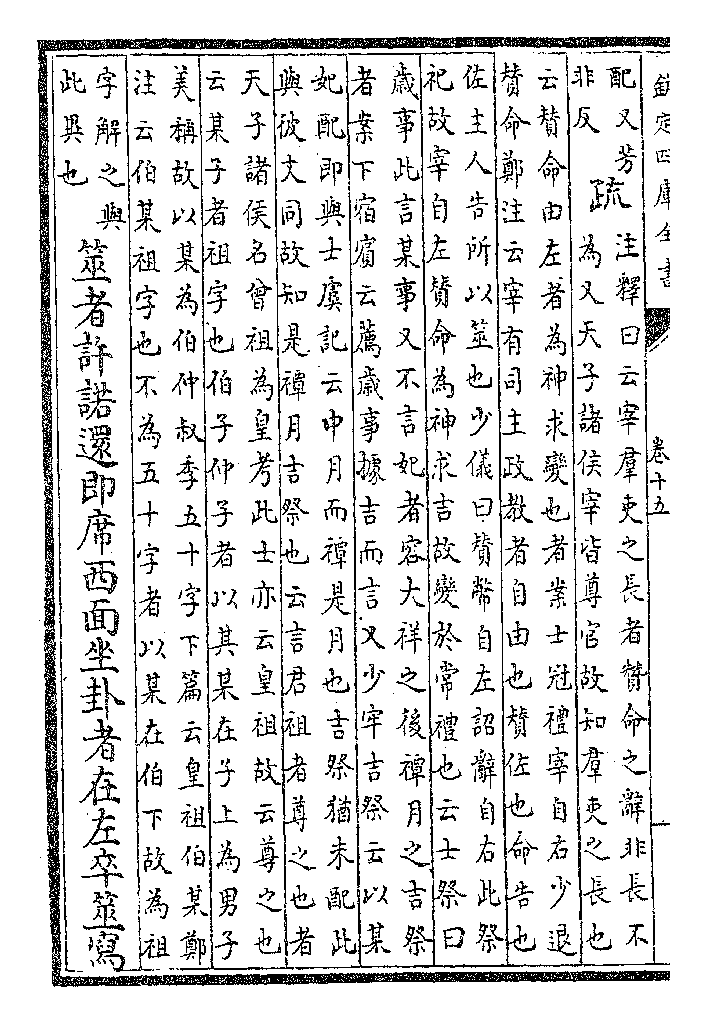 欽定四庫全書 卷十五 一
配又芳
非反
疏
注釋曰云宰羣吏之長者贊命之辭非長不
為又天子諸侯宰皆尊官故知羣吏之長也
云贊命由左者為神求變也者案士冠禮宰自右少退
贊命鄭注云宰有司主政教者自由也贊佐也命告也
佐主人告所以筮也少儀曰贊幣自左詔辭自右此祭
祀故宰自左贊命為神求吉故變於常禮也云士祭曰
歲事此言某事又不言妃者容大祥之後禫月之吉祭
者案下宿賓云薦歲事據吉而言又少牢吉祭云以某
妃配即與士虞記云中月而禫是月也吉祭猶未配此
與彼文同故知是禫月吉祭也云言君祖者尊之也者
天子諸侯名曾祖為皇考此士亦云皇祖故云尊之也
云某子者祖字也伯子仲子者以其某在子上為男子
美稱故以某為伯仲叔季五十字下篇云皇祖伯某鄭
注云伯某祖字也不為五十字者以某在伯下故為祖
字解之與
此異也
筮者許諾還即席西面坐卦者在左卒筮寫